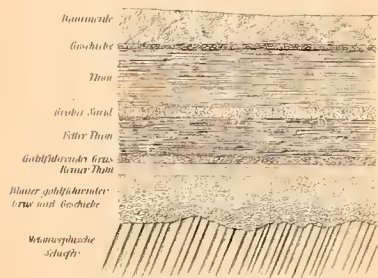 Dammerde
Geschiebe
Thon
Grober Sand
Fetter Thon
Goldführender Grus
Blauer goldführender
Grus und Geschiebe
Metamorphische
Schiefer